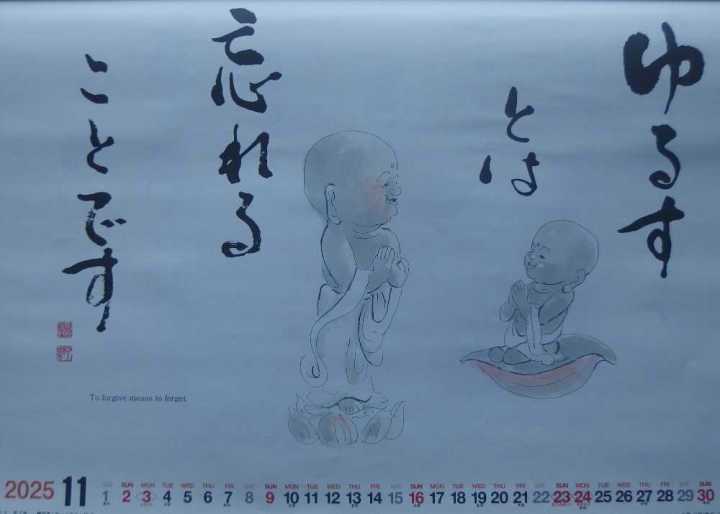 ゆるす
とは
忘れる
ことです
To forgive means to forget
2025 11
SAT SUN MON TUE WED THU FRI SAT SUN MON TUE WED THU FRI SAT SUN MON TUE WED THU FRI SAT SUN MON TUE WED THU FRI SAT SUN
1 2 3 4 5 6 7 8 9 10 11 12 13 14 15 16 17 18 19 20 21 22 23 24 25 26 27 28 29 30